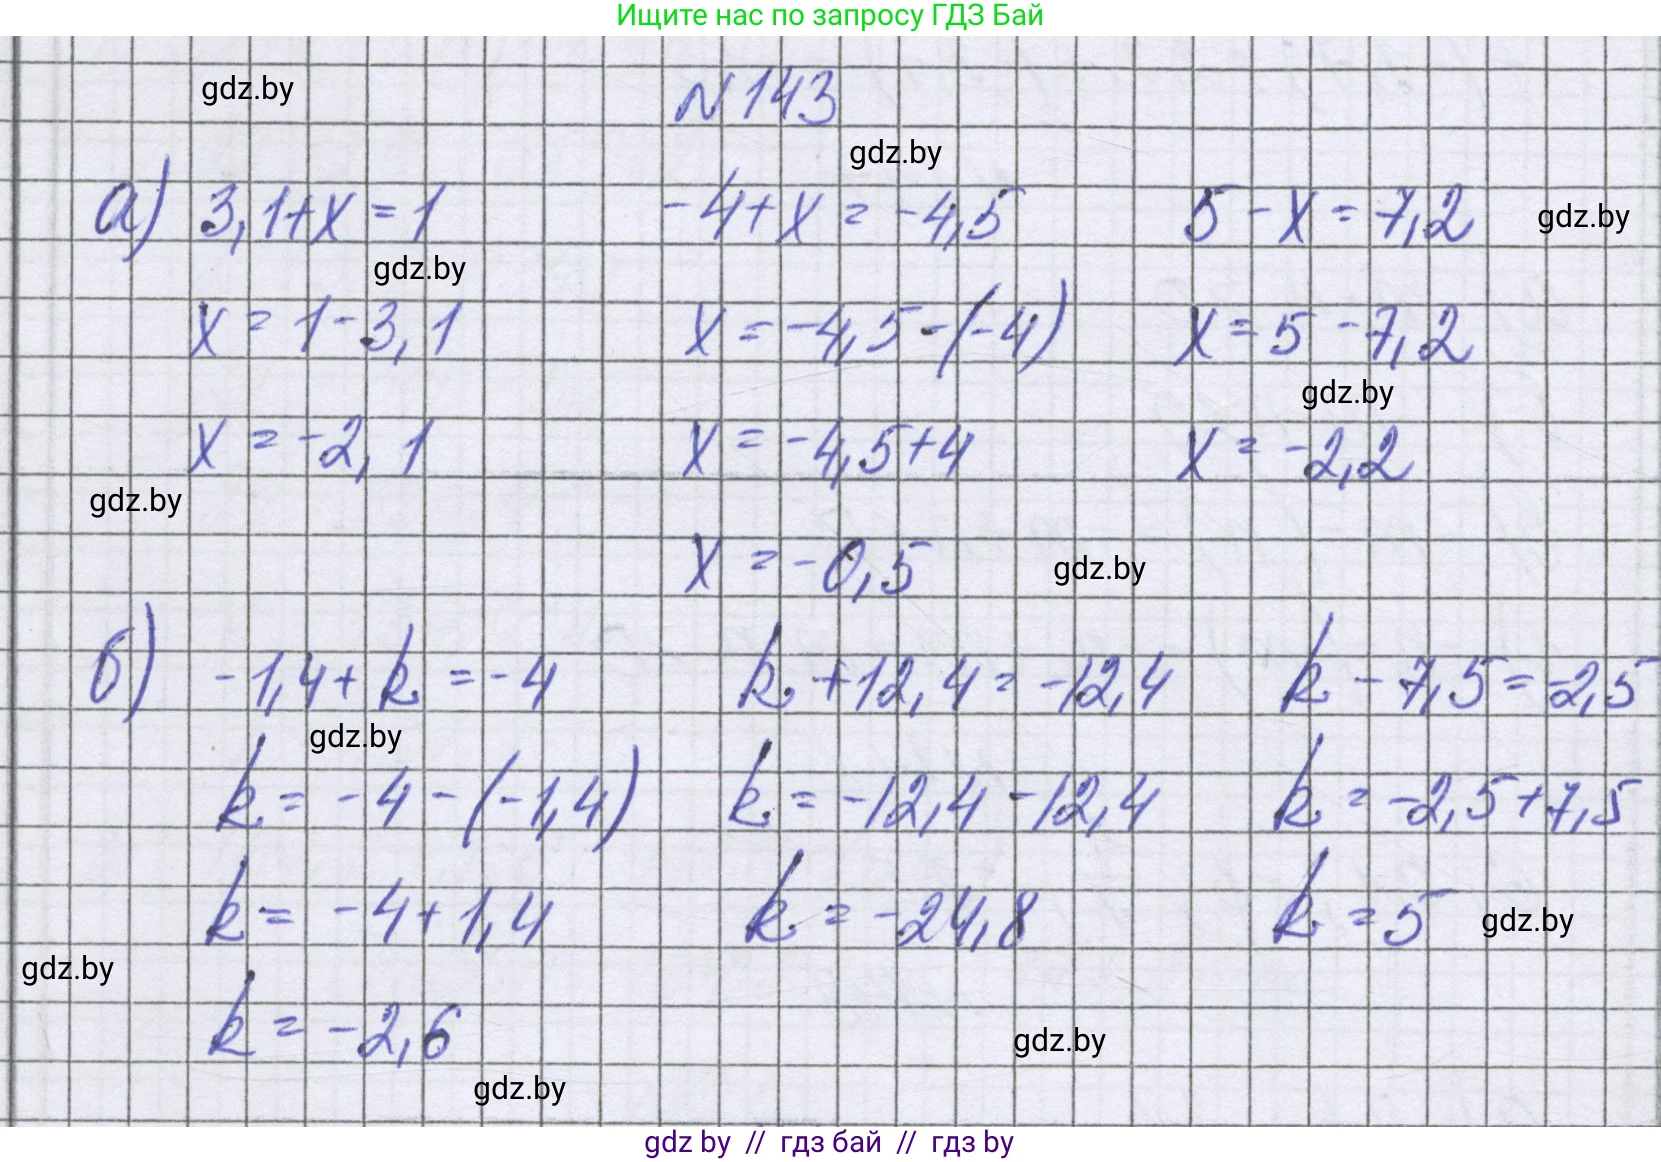 Ищите нас по запросу ГДЗ Бай
gdz.by
N 143
gdz.by
а) 3,1+x=1 -4+x=-4,5 5-x=7,2 gdz.by
gdz.by
x=1-3,1 x=-4,5-(-4) x=5-7,2
gdz.by
x=-2,1 x=-4,5+4 x=-2,2
gdz.by
x=-0,5 gdz.by
б) -1,4+k=-4 k+12,4=-12,4 k-7,5=-2,5
gdz.by
k=-4-(-1,4) k=-12,4-12,4 k=-2,5+7,5
k=-4+1,4 k=-24,8 k=5 gdz.by
gdz.by
k=-2,6 gdz.by
gdz.by
gdz by // гдз бай // гдз by